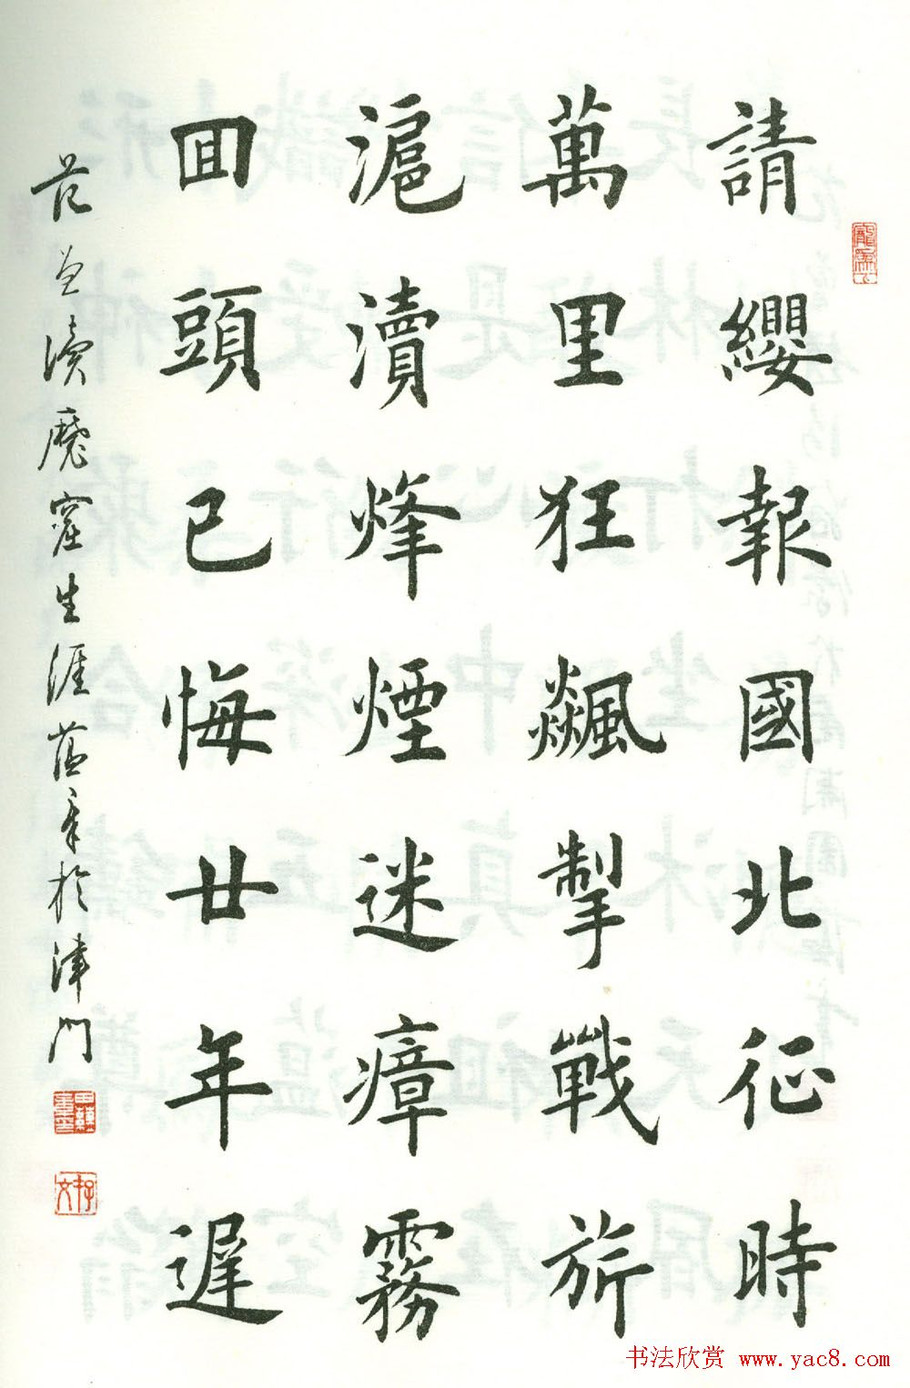 請纓報國北征時
萬里狂飆掣戰旂
滬瀆烽煙迷瘴霧
囬頭已悔廿年遲
范讀魔窟生涯蕰章於津門
书法欣赏 www.yac8.com